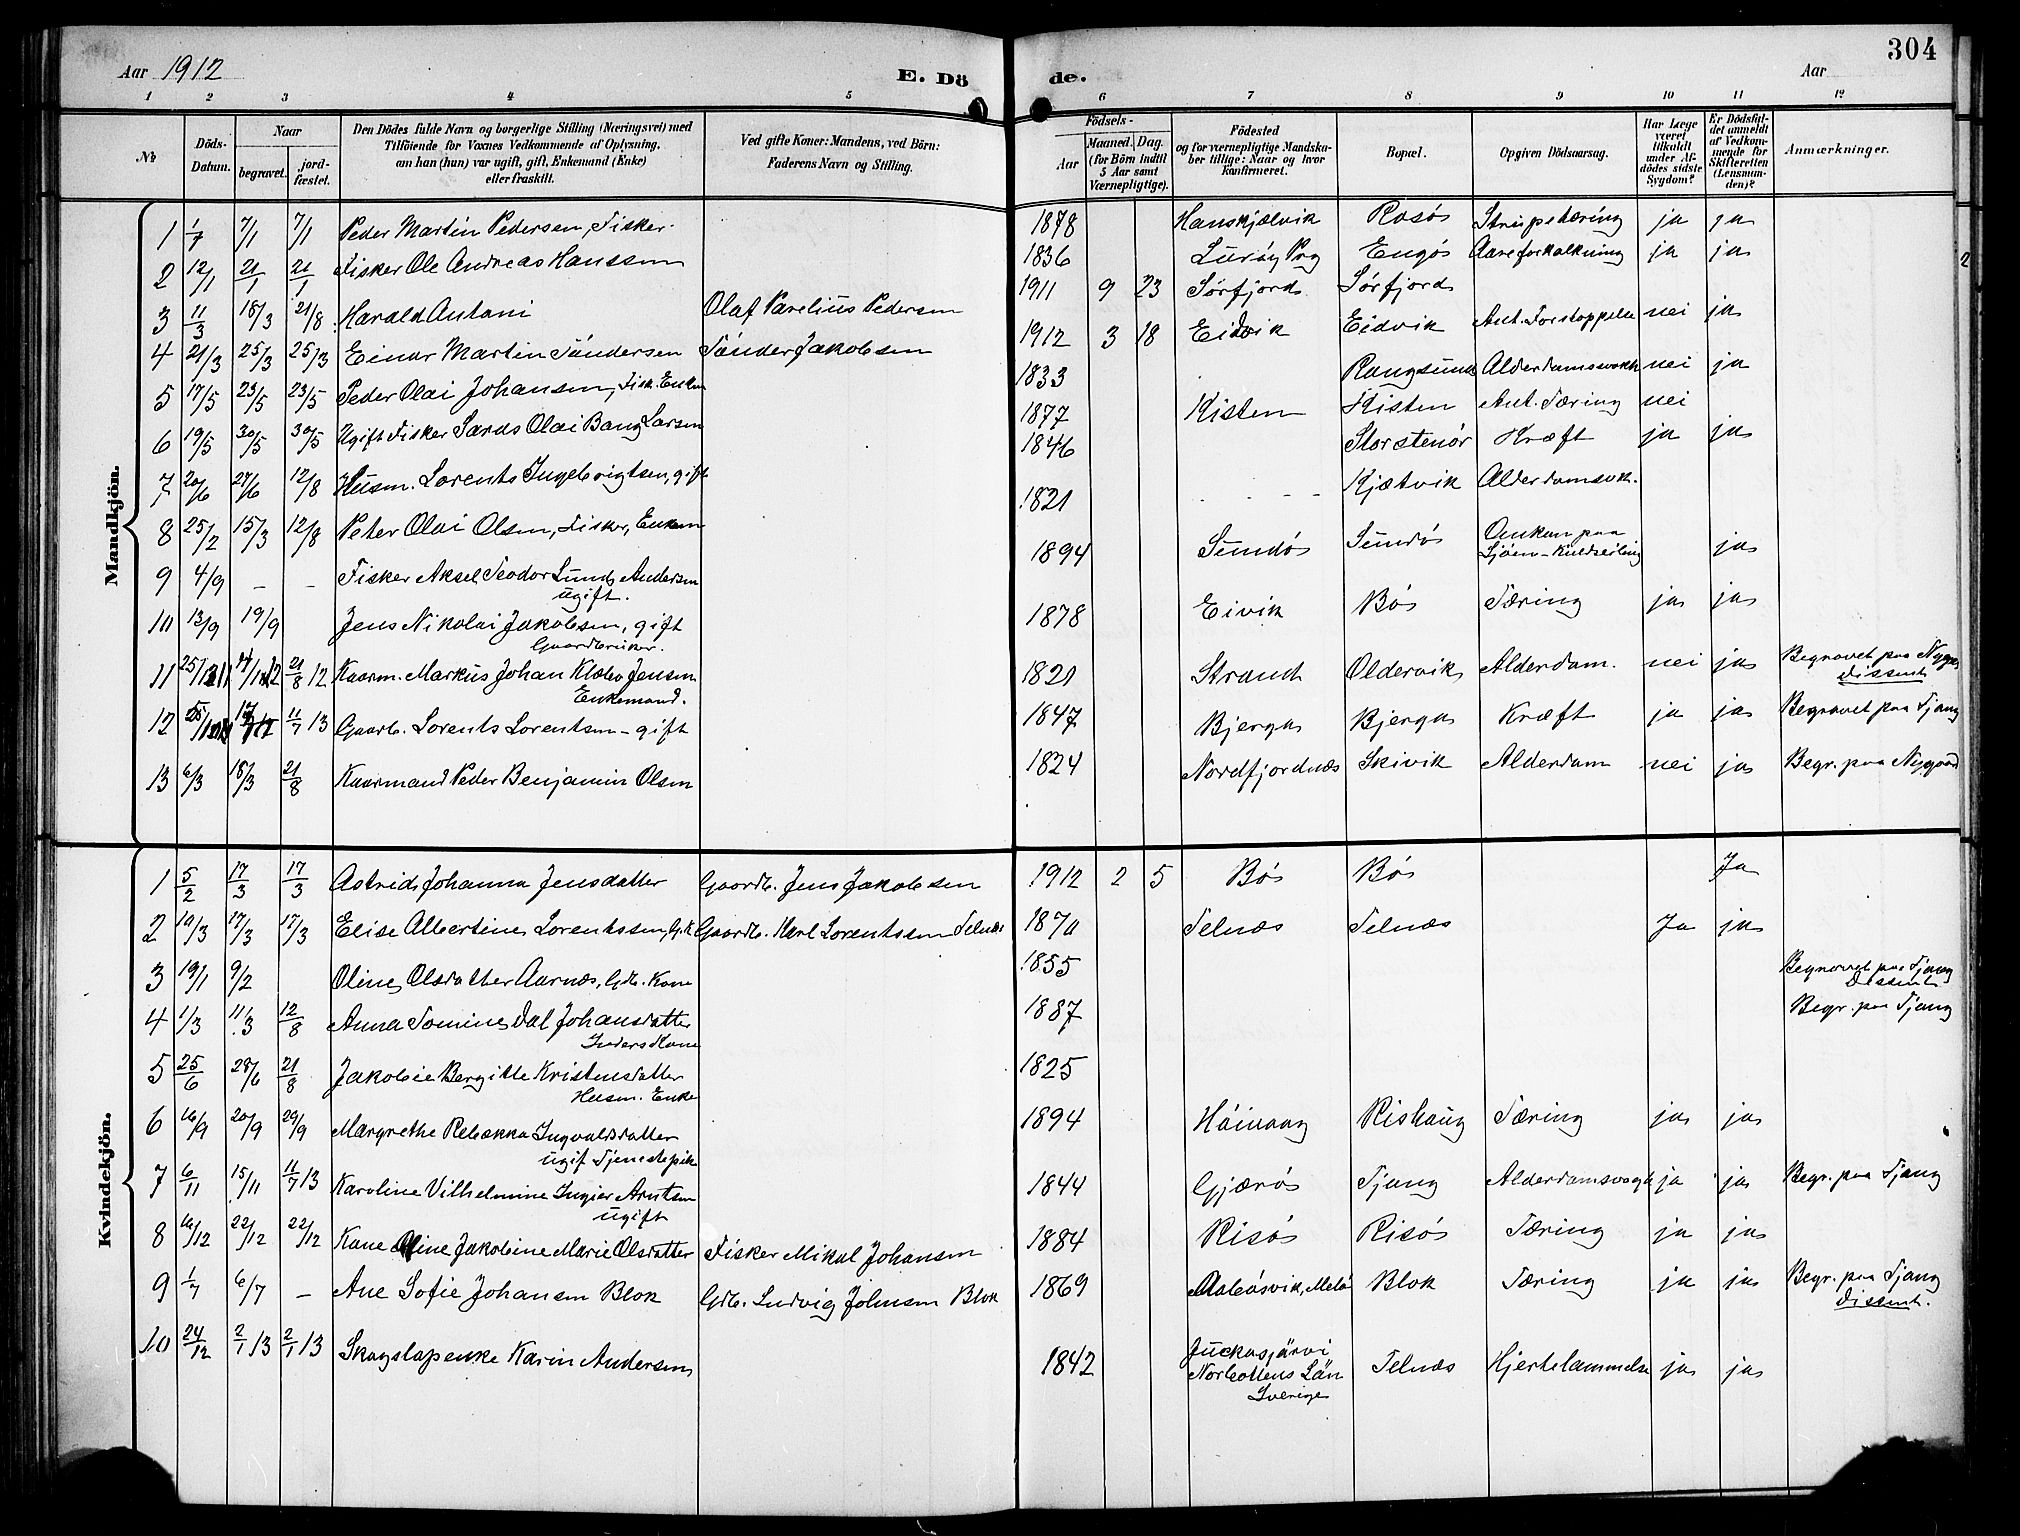 304
Aar 1912
E. Dö
de.
Aar
1 2 3 4 5 6 7 8 9 10 11 12
No
Döds-Datum.
Naar
begravet.
jord-fæstet.
Den Dödes fulde Navn og borgerlige Stilling (Næringsvei) med
Tilföiende for Voxnes Vedkommende af Oplysning,
om han (hun) var ugift, gift, Enkemand (Enke)
eller fraskilt.
Ved gifte Koner: Mandens, ved Börn:
Faderens Navn og Stilling.
Födsels-
Aar
Maaned. Dag.
(for Börn indtil
5 Aar samt
Værnepligtige).
Födested
og for værnepligtige Mandska-
ber tillige: Naar og hvor
konfirmeret.
Bopæl.
Opgiven Dödsaarsag.
Har Læge
været
tilkaldt
under Af-
dödes sidste
Sygdom?
Er Dödsfal-
det anmeldt
af Vedkom-
mende for
Skifteretten
(Lensman-
den)?
Anmærkninger.
Mandkjön.
1 1/7 7/1 7/1 Peder Martin Pedersen, Fisker. 1878 Hanskjælvik Rosös Strupetæring ja ja
2 12/1 21/1 21/1 Fisker Ole Andreas Hanssen 1836 Luröy Prg Engös Aareforkalkning ja ja
3 11/3 18/3 21/8 Harald Antoni Olaf Parelius Pedersen 1911 9 23 Sörfjord Sörfjord
4 21/3 25/3 25/3 Einar Martin Töndersen Tönder Jakobsen 1912 3 18 Eidvik Eidvik Ant. Forstoppelse nei ja
5 17/5 23/5 23/5 Peder Olai Johansen, Fisk. Enkem 1833 Rangsund Alderdomssvakh nei ja
6 19/5 30/5 30/5 Ugift Fisker Olai Bang Larsen 1877 Kisten Kisten Ant. Tæring nei
7 20/6 27/6 12/8 Husm. Lorents Ingebrigtsen, gift 1846 Storstenör Kræft ja ja
8 25/2 15/3 12/8 Peter Olai Olsen, Fisker, Enkem 1821 Kjætvik Alderdomsvk.
9 4/9 – – Fisker Aksel Teodor Lund Andersen
ugift.
1894 Sundös Sundös Omkom paa
Sjöen – Kuldseiling
ja
10 13/9 19/9 Jens Nikolai Jakobsen, gift
Gaardbruker.
1878 Eivik Bös Tæring ja ja
11 25/12 21/8 12 Kaarm. Markus Johan Klæbo Jensen
Enkemand.
1821 Strand Oldervik Alderdom. nei ja Begravet paa
Dissent
12 11/7 13 Gaardb. Lorents Lorentsen – gift 1847 Bjerga Bjerga Kræft ja ja Begravet paa Tjang
13 6/3 18/3 21/8 Kaarmand Peder Benjamin Olsen 1824 Nordfjordnæs Skivik Alderdom nei ja Begr. paa Nygaard
Kvindekjön.
1 5/2 17/3 17/3 Astrid Johanna Jensdatter Gaardb. Jens Jakobsen 1912 2 5 Bös Bös Ja
2 10/3 17/3 17/3 Elise Albertine Lorentssen, G.K Gaardb. Karl Lorentssen Telnæs 1870 Telnæs Telnæs Ja ja
3 19/1 9/2 Oline Olsdatter Aarnæs, Gdb. Kone 1855 Begravet paa Tjang
Dissent
4 1/3 11/3 12/8 Anna Tomine Dal Johansdatter
Inders Kone
1887 Begr. paa Tjang
5 25/6 28/6 21/8 Jakobie Bergitte Kristensdatter
Husm. Enke
1825
6 16/9 20/9 29/9 Margrethe Rebækka Ingvaldsdatter
ugif Tjenestepik
1894 Höivaag Rishaug Tæring ja ja
7 6/11 15/11 11/7 13 Karoline Vilhelmine Ingier Arntsen
ugift
1844 Gjærös Tjang Alderdomsvagh ja ja Begr. paa Tjang
8 16/12 22/12 22/12 Kone Oline Jakobine Marie Olsdatter Fisker Mikal Johansen 1884 Risös Risös Tæring ja ja
9 1/7 6/7 – Ane Sofie Johansen Blok Gdb. Ludvig Johnsen Blok 1869 Aabösvik, Melö Blok Tæring ja ja Begr. paa Tjang
Dissent.
10 24/12 2/1 13 2/1 13 Skogslapenke Karin Andersen 1842 Juckasjärvi
Norbottens Län
Sverige
Telnæs Hjertelammelse ja ja